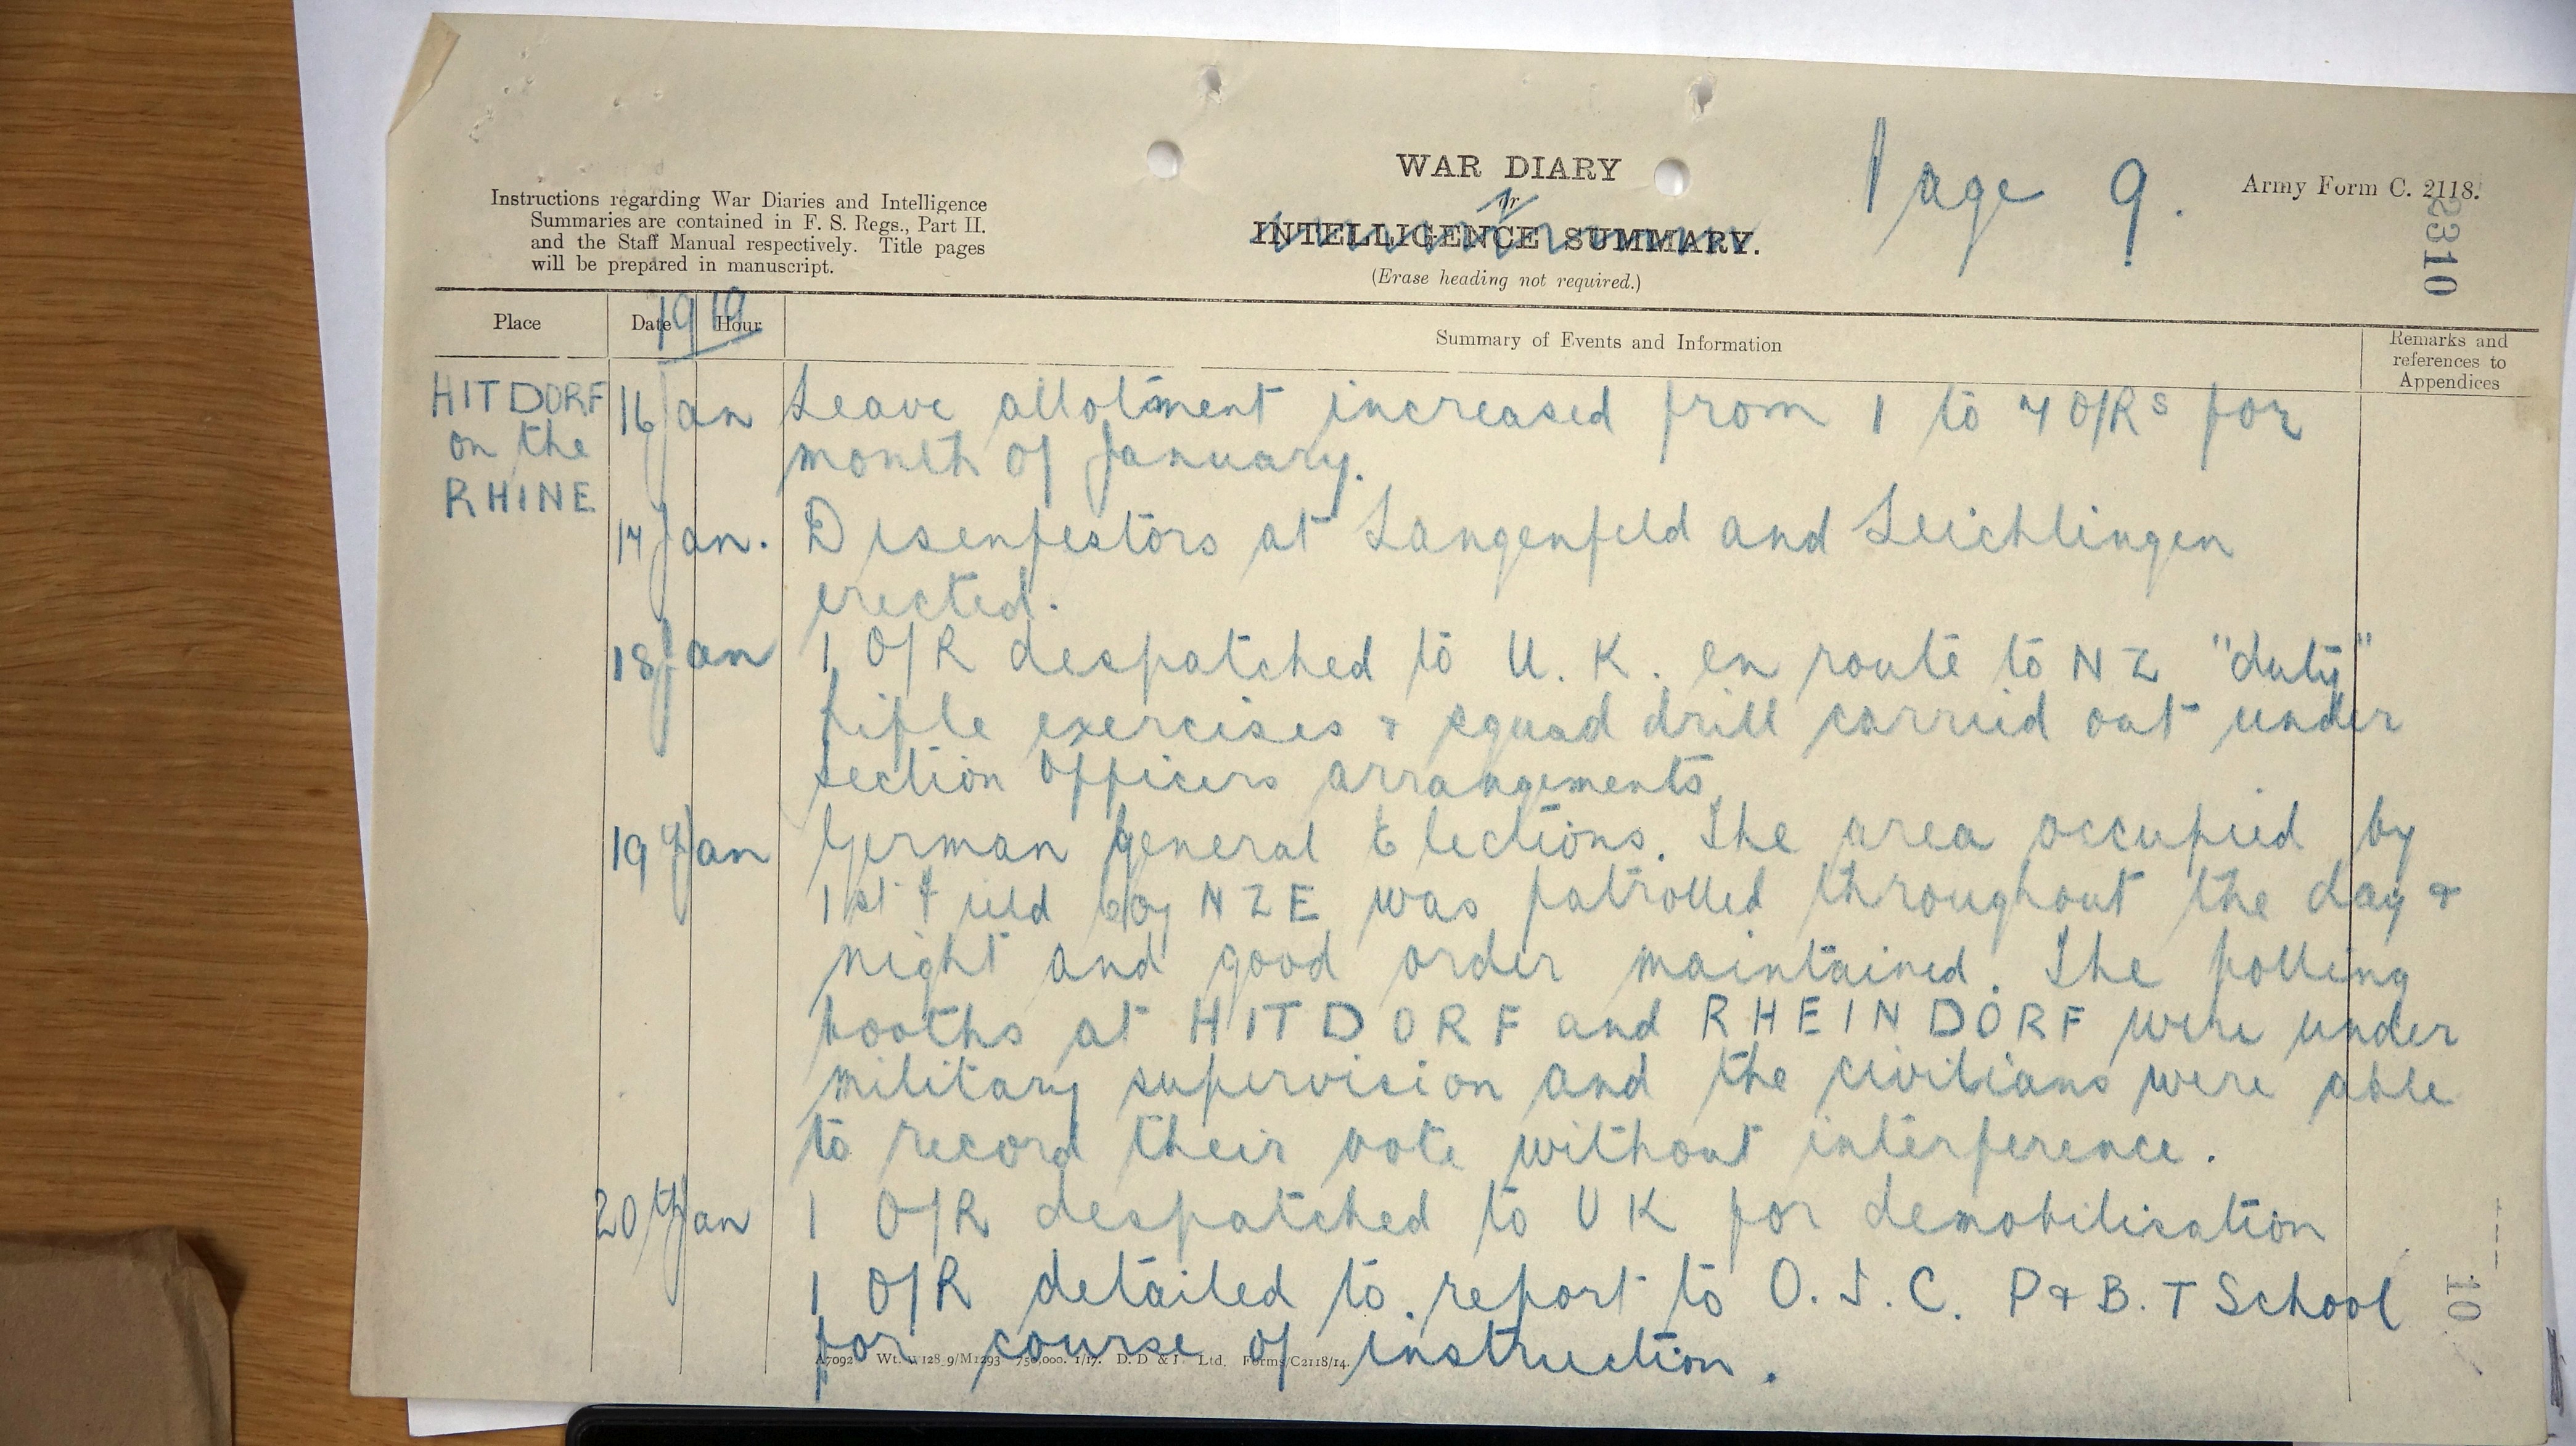 WAR DIARY
or
INTELLIGENCE SUMMARY.
(Erase heading not required.)
Page 9.
Army Form C. 2118.
2310
Instructions regarding War Diaries and Intelligence
Summaries are contained in F. S. Regs., Part II.
and the Staff Manual respectively. Title pages
will be prepared in manuscript.
1919
Place
Date
Hour
Summary of Events and Information
Remarks and
references to
Appendices
HITDORF
on the
RHINE
16 Jan Leave allotment increased from 1 to 7 O/Rs for
month of January.
17 Jan. Disenfestors at Langenfeld and Leichlingen
erected.
18 Jan 1 O/R despatched to U.K. en route to NZ "duty"
Rifle exercises & squad drill carried out under
section officers arrangements
19 Jan German General Elections. The area occupied by
1st Field Coy NZE was patrolled throughout the day &
night and good order maintained. The polling
booths at HITDORF and RHEINDORF were under
military supervision and the civilians were able
to record their vote without interference.
20th Jan 1 O/R despatched to UK for demobilisation
1 O/R detailed to report to O.I.C. P & B.T School
for course of instruction.
A7092 Wt. W128 9/M1293 750,000. 1/17. D. D & L Ltd. Forms/C2118/14.
10